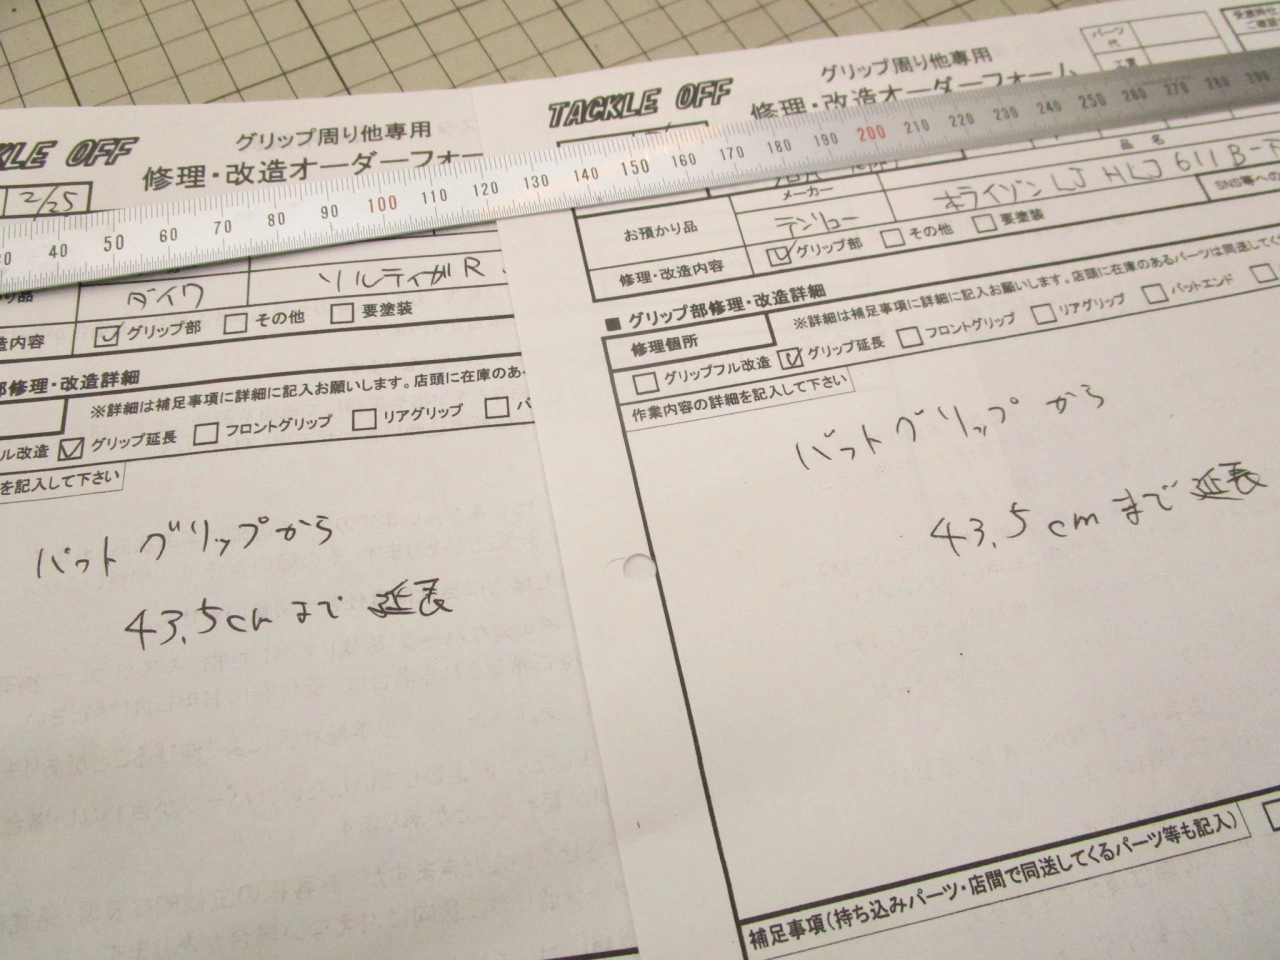 KLE OFF
グリップ周り他専用
修理・改造オーダーフォー
2/25
ダイワ
ソルティガR
造内容
グリップ部
その他
要塗装
部修理・改造詳細
※詳細は補足事項に詳細に記入お願いします。店頭に在庫のあ
ル改造
グリップ延長
フロントグリップ
リアグリップ
を記入して下さい
バットグリップから
43.5cmまで延長
TACKLE OFF
グリップ周り他専用
修理・改造オーダーフォーム
パーツ代
メーカー
品名
お預かり品
テンリュー
ホライゾンLJ HLJ611B-
SNS等への
修理・改造内容
グリップ部
その他
要塗装
■ グリップ部修理・改造詳細
修理個所
※詳細は補足事項に詳細に記入お願いします。店頭に在庫のあるパーツは同送してく
グリップフル改造
グリップ延長
フロントグリップ
リアグリップ
バットエンド
作業内容の詳細を記入して下さい
バットグリップから
43.5cmまで延長
補足事項(持ち込みパーツ・店間で同送してくるパーツ等も記入)
40 50 60 70 80 90 100 110 120 130 140 150 160 170 180 190 200 210 220 230 240 250 260 270 280 290